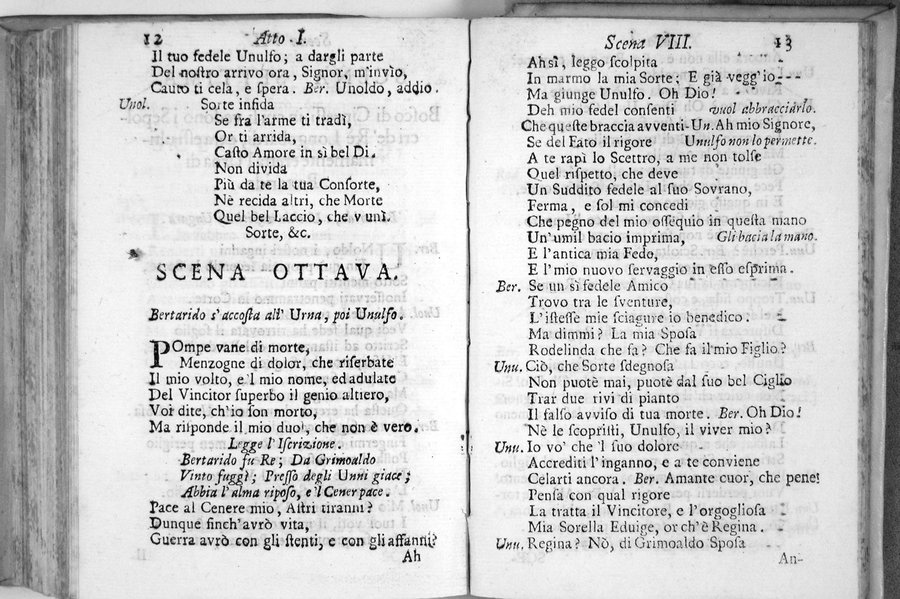 12 Atto I.
Il tuo fedele Unulfo; a dargli parte
Del noſtro arrivo ora, Signor, m'invìo,
Cauto ti cela, e ſpera. Ber. Unoldo, addio.
Unol. Sorte infida
Se fra l'arme ti tradì,
Or ti arrida,
Caſto Amore in sì bel Dì.
Non divida
Più da te la tua Conſorte,
Nè recida altri, che Morte
Quel bel Laccio, che v'unì.
Sorte, &c.
SCENA OTTAVA.
Bertarido s'accoſta all' Urna, poi Unulfo.
POmpe vane di morte,
Menzogne di dolor, che riſerbate
Il mio volto, e 'l mio nome, ed adulate
Del Vincitor ſuperbo il genio altiero,
Voi dite, ch'io ſon morto,
Ma riſponde il mio duol, che non è vero.
Legge l'Iſcrizione.
Bertarido fu Re; Da Grimoaldo
Vinto fuggì; Preſſo degli Unni giace;
Abbia l'alma ripoſo, e 'l Cener pace.
Pace al Cenere mio, Aſtri tiranni?
Dunque finch'avrò vita,
Guerra avrò con gli ſtenti, e con gli affanni?
Ah
Scena VIII. 13
Ah sì, leggo ſcolpita
In marmo la mia Sorte; E già vegg'io
Ma giunge Unulfo. Oh Dio!
Deh mio fedel conſenti vuol abbracciarlo.
Che queſte braccia avventi-Un. Ah mio Signore,
Se del Fato il rigore Unulfo non lo permette.
A te rapì lo Scettro, a me non tolſe
Quel riſpetto, che deve
Un Suddito fedele al ſuo Sovrano,
Ferma, e ſol mi concedi
Che pegno del mio oſſequio in queſta mano
Un'umil bacio imprima, Gli bacia la mano.
E l'antica mia Fedo,
E l'mio nuovo ſervaggio in eſſo eſprima.
Ber. Se un sì fedele Amico
Trovo tra le ſventure,
L'iſteſſe mie ſciagure io benedico.
Ma dimmi? La mia Spoſa
Rodelinda che fa? Che fa il mio Figlio?
Unu. Ciò, che Sorte ſdegnoſa
Non puotè mai, puotè dal ſuo bel Ciglio
Trar due rivi di pianto
Il falſo avviſo di tua morte. Ber. Oh Dio!
Nè le ſcopriſti, Unulfo, il viver mio?
Unu. Io vo' che 'l ſuo dolore
Accrediti l'inganno, e a te conviene
Celarti ancora. Ber. Amante cuor, che pene!
Penſa con qual rigore
La tratta il Vincitore, e l'orgoglioſa
Mia Sorella Eduige, or ch'è Regina.
Unu. Regina? Nò, di Grimoaldo Spoſa
An-